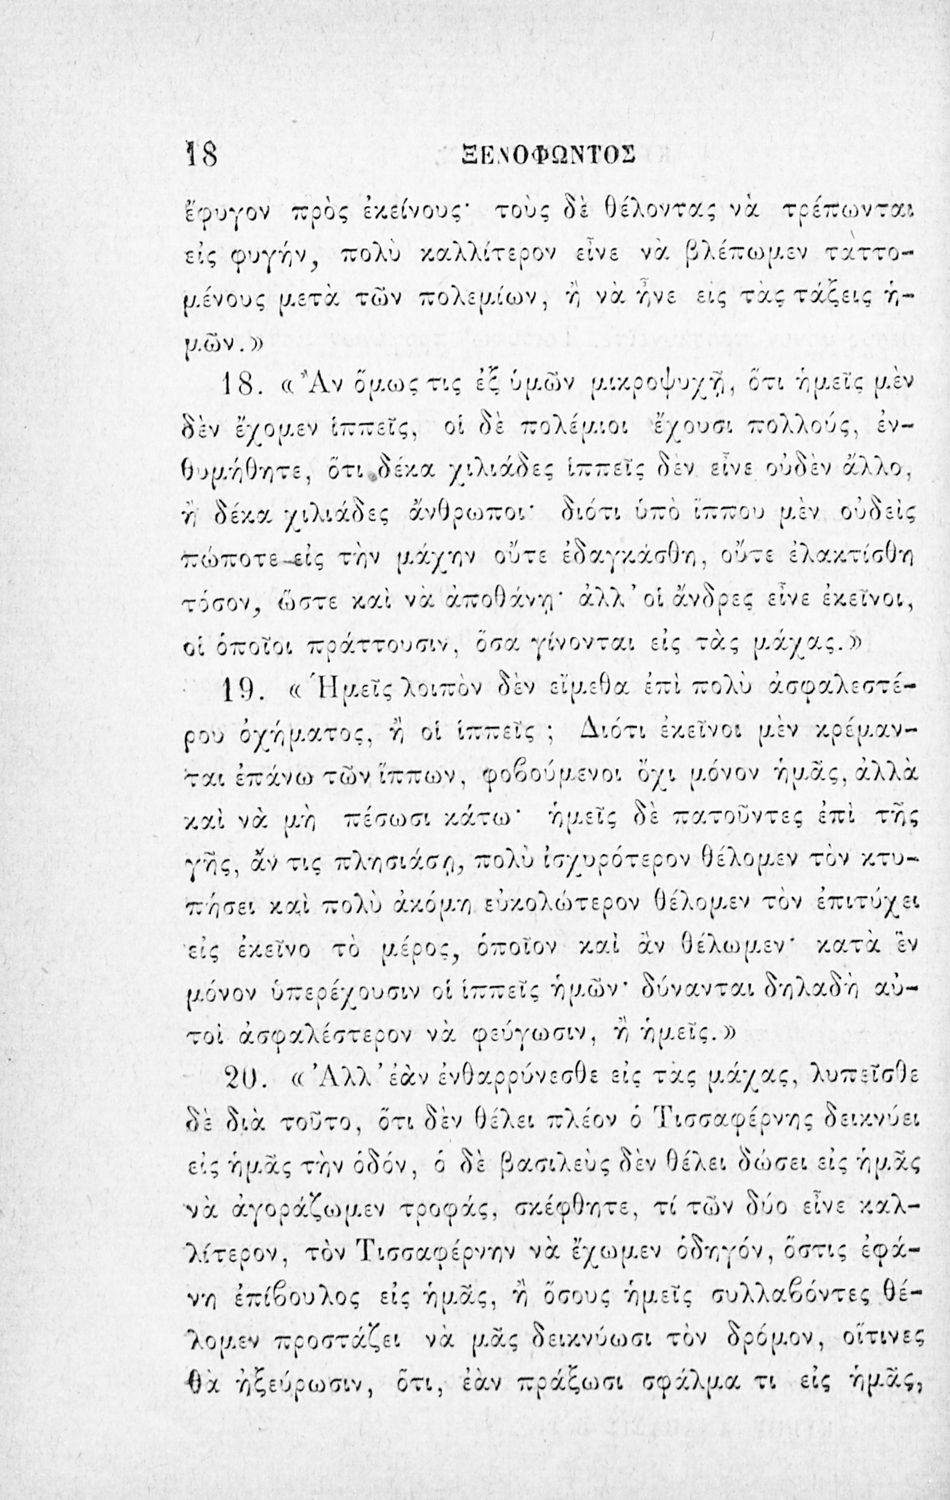 18 ΞΕΝΟΦΩΝΤΟΣ
ἔφυγον πρὸς ἐκείνους· τοὺς δὲ θέλοντας νὰ τρέπωνται
εἰς φυγήν, πολὺ καλλίτερον εἶνε νὰ βλέπωμεν ταττο-
μένους μετὰ τῶν πολεμίων, ἢ νὰ ἦνε εἰς τὰς τάξεις ἡ-
μῶν.»
18. «Ἂν ὅμως τις ἐξ ὑμῶν μικροψυχῇ, ὅτι ἡμεῖς μὲν
δὲν ἔχομεν ἱππεῖς, οἱ δὲ πολέμιοι ἔχουσι πολλούς, ἐν-
θυμήθητε, ὅτι δέκα χιλιάδες ἱππεῖς δὲν εἶνε οὐδὲν ἄλλο,
ἢ δέκα χιλιάδες ἄνθρωποι· διότι ὑπὸ ἵππου μὲν οὐδεὶς
πώποτε εἰς τὴν μάχην οὔτε ἐδαγκάσθη, οὔτε ἐλακτίσθη
τόσον, ὥστε καὶ νὰ ἀποθάνῃ· ἀλλ' οἱ ἄνδρες εἶνε ἐκεῖνοι,
οἱ ὁποῖοι πράττουσιν, ὅσα γίνονται εἰς τὰς μάχας.»
19. «Ἡμεῖς λοιπὸν δὲν εἴμεθα ἐπὶ πολὺ ἀσφαλεστέ-
ρου ὀχήματος, ἢ οἱ ἱππεῖς ; Διότι ἐκεῖνοι μὲν κρέμαν-
ται ἐπάνω τῶν ἵππων, φοβούμενοι ὄχι μόνον ἡμᾶς, ἀλλὰ
καὶ νὰ μὴ πέσωσι κάτω· ἡμεῖς δὲ πατοῦντες ἐπὶ τῆς
γῆς, ἄν τις πλησιάσῃ, πολὺ ἰσχυρότερον θέλομεν τὸν κτυ-
πήσει καὶ πολὺ ἀκόμη εὐκολώτερον θέλομεν τὸν ἐπιτύχει
εἰς ἐκεῖνο τὸ μέρος, ὁποῖον καὶ ἂν θέλωμεν· κατὰ ἓν
μόνον ὑπερέχουσιν οἱ ἱππεῖς ἡμῶν· δύνανται δηλαδὴ αὐ-
τοὶ ἀσφαλέστερον νὰ φεύγωσιν, ἢ ἡμεῖς.»
20. «Ἀλλ' ἐὰν ἐνθαρρύνεσθε εἰς τὰς μάχας, λυπεῖσθε
δὲ διὰ τοῦτο, ὅτι δὲν θέλει πλέον ὁ Τισσαφέρνης δεικνύει
εἰς ἡμᾶς τὴν ὁδόν, ὁ δὲ βασιλεὺς δὲν θέλει δώσει εἰς ἡμᾶς
νὰ ἀγοράζωμεν τροφάς, σκέφθητε, τί τῶν δύο εἶνε καλ-
λίτερον, τὸν Τισσαφέρνην νὰ ἔχωμεν ὁδηγόν, ὅστις ἐφά-
νη ἐπίβουλος εἰς ἡμᾶς, ἢ ὅσους ἡμεῖς συλλαβόντες θέ-
λομεν προστάζει νὰ μᾶς δεικνύωσι τὸν δρόμον, οἵτινες
θὰ ἠξεύρωσιν, ὅτι, ἐὰν πράξωσι σφάλμα τι εἰς ἡμᾶς,